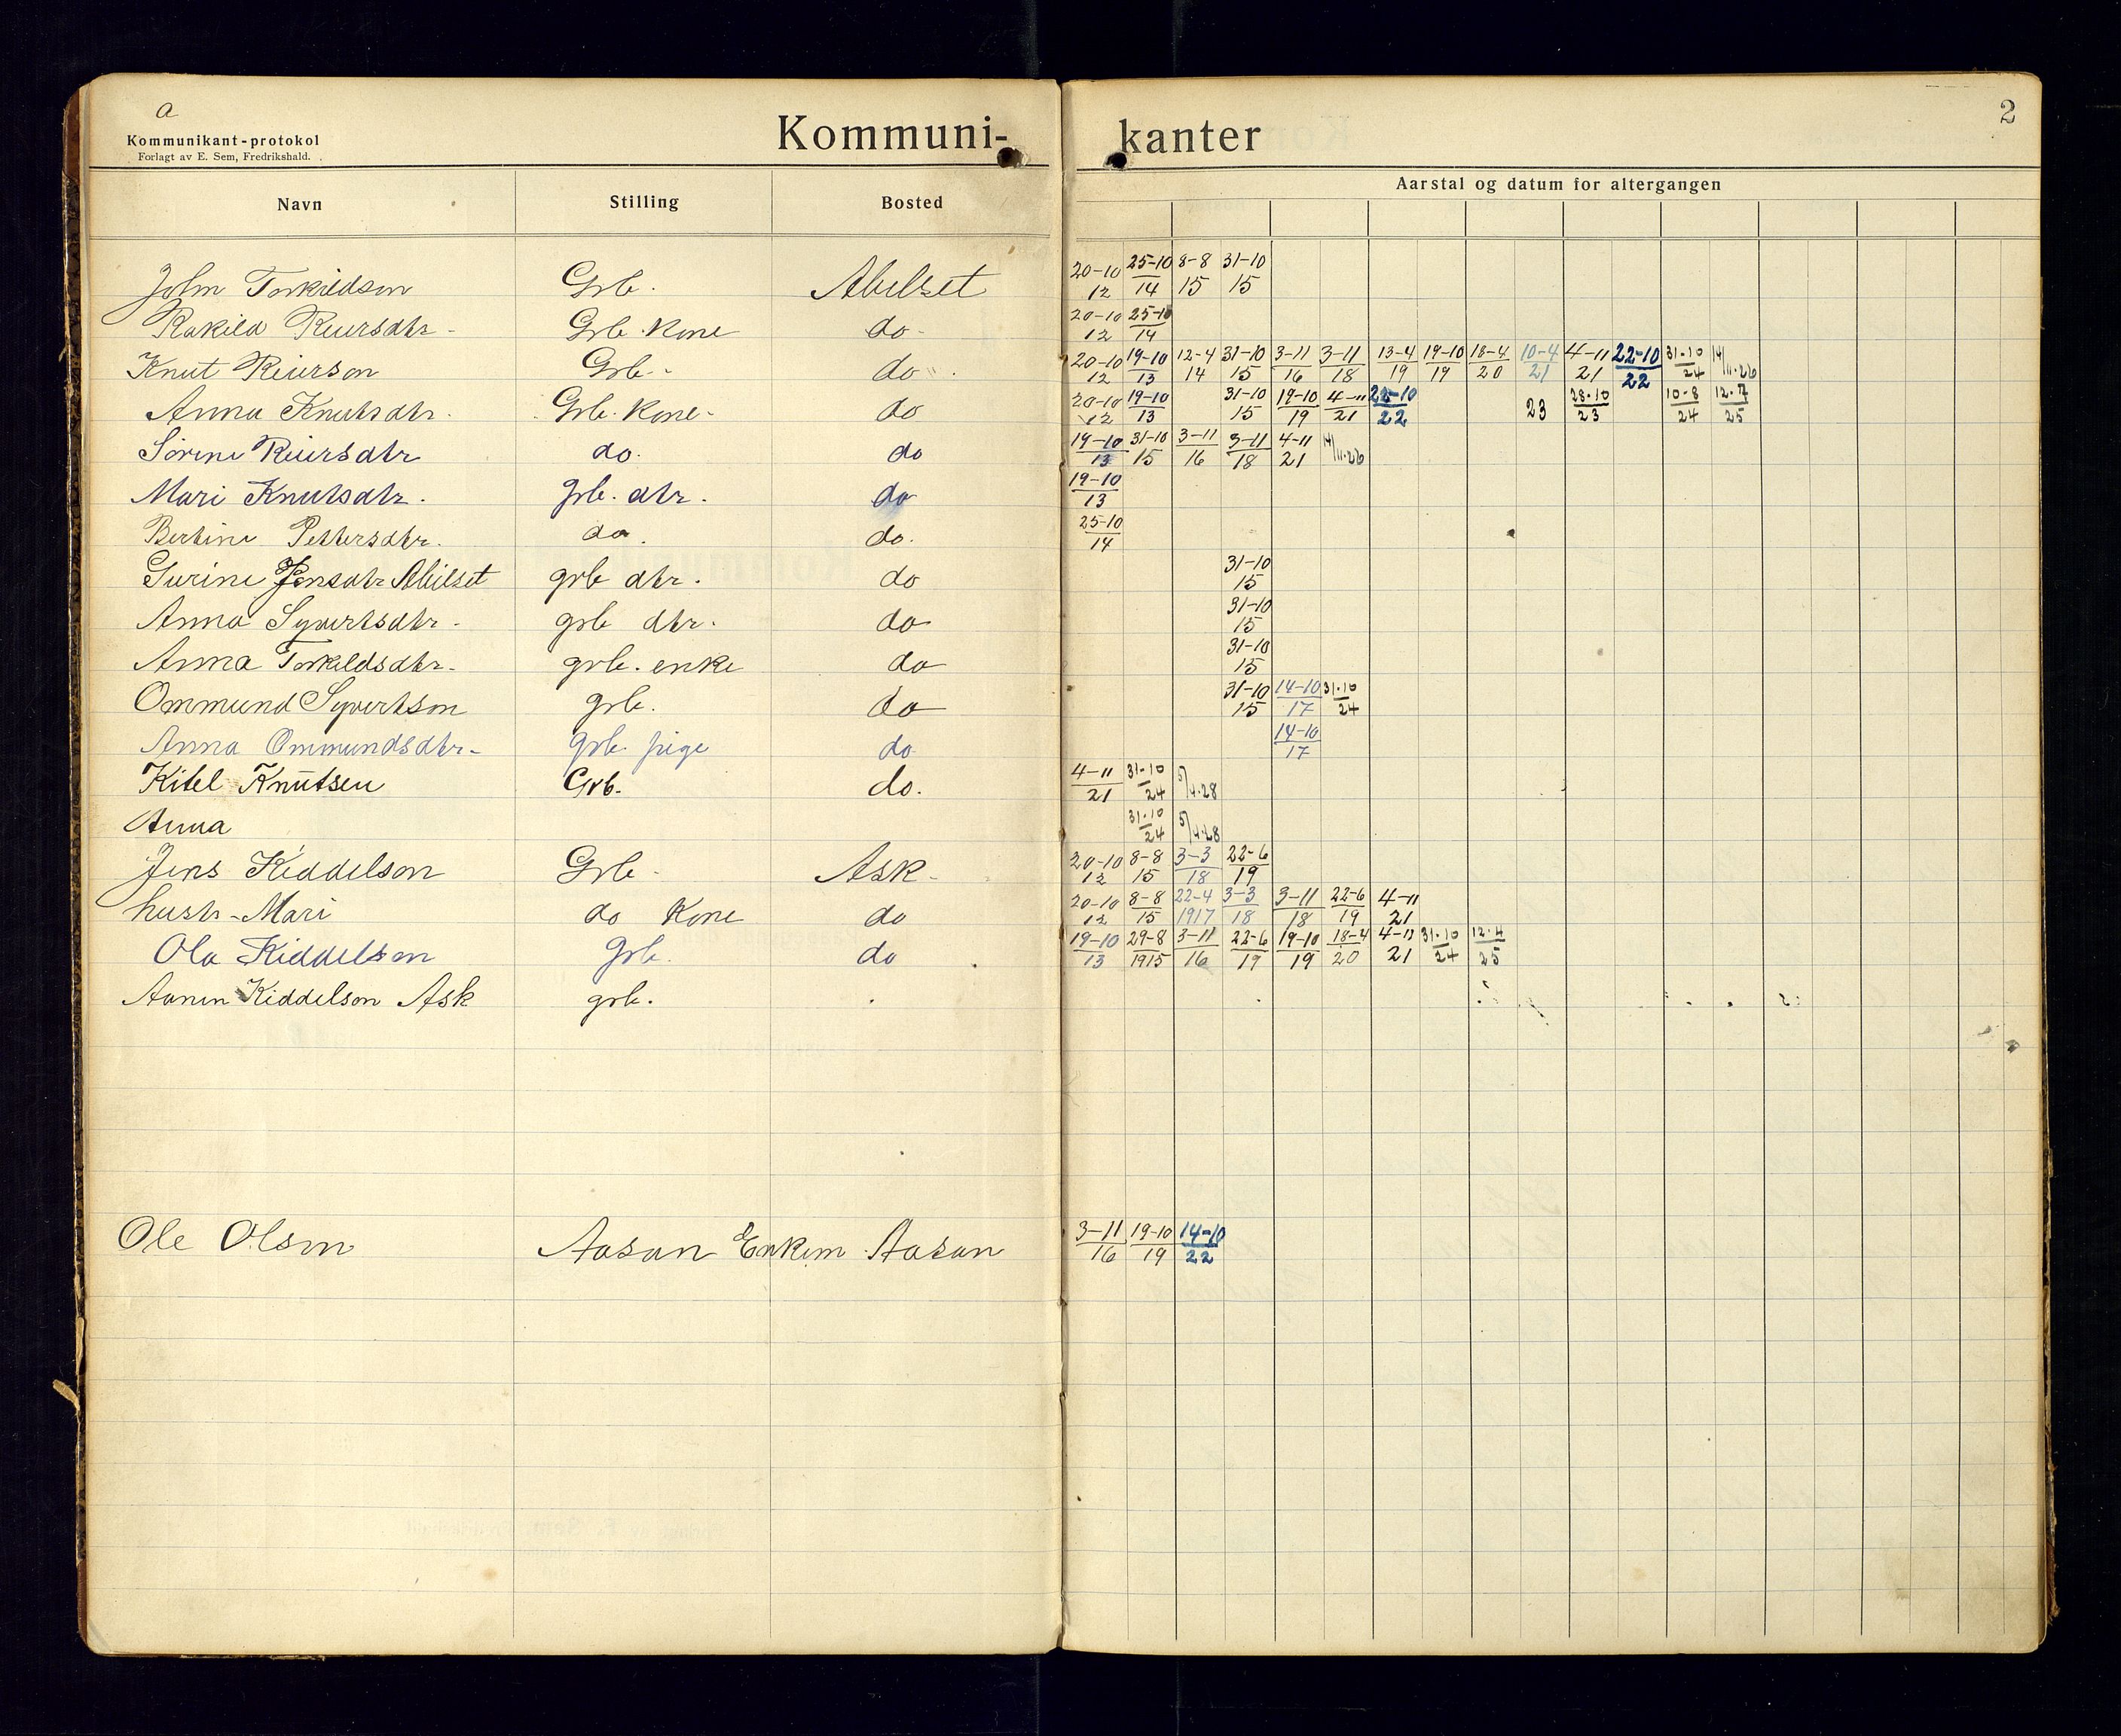 a
2
Kommunikant-protokol
Forlagt av E. Sem, Fredrikshald.
Kommuni-kanter
Aarstal og datum for altergangen
Navn Stilling Bosted
John Torkildson Grb. Abelset 20-10/12 25-10/14 8-8/15 31-10/15
Rakild Reiersdtr - Grb. Kone do - 20-10/12 25-10/14
Knut Reierson Grb - do 20-10/12 19-10/13 12-4/14 31-10/15 3-11/16 3-11/18 13-4/19 19-10/19 18-4/20 10-4/21 4-11/21 22-10/22 31.10/24 14/11.26
Anna Knutsdtr. Grb. Kone - do 20-10/12 19-10/13 31-10/15 19-10/19 4-11/21 22-10/22 23 28.10/23 10-8/24 12.7/25
Sörine Reiersdtr do. do 19-10/13 31-10/15 3-11/16 3-11/18 4-11/21 14/11.26
Mari Knutsdtr. grb. dtr. do 19-10/13
Bertine Pettersdtr. do. do. 25-10/14
Gurine Jensdtr Abelset grb dtr. do 31-10/15
Anna Syvertsdtr - grb dtr. do 31-10/15
Anna Torkildsdtr - grb. enke do 31-10/15
Ommund Syvertson grb. do 31-10/15 14-10/17 31.10/24
Anna Ommundsdtr - grb. pige do 14-10/17
Kitel Knutsen Grb. do. 4-11/21 31.10/24 5/4.28
Anna 31.10/24 5/4.28
Jens Kiddelson Grb - Ask - 20-10/12 8-8/15 3-3/18 22-6/19
hustr - Mari do Kone do 20-10/12 8-8/15 22-4/1917 3-3/18 3-11/18 22-6/19 4-11/21
Ola Kiddelson Grb. do 19-10/13 29-8/1915 3-11/16 22-6/19 19-10/19 18-4/20 4-11/21 31.10/24 12.4/25
Aanen Kiddelson Ask grb.
Ole Olson Aasan Enkem. Aasan 3-11/16 19-10/19 14-10/22